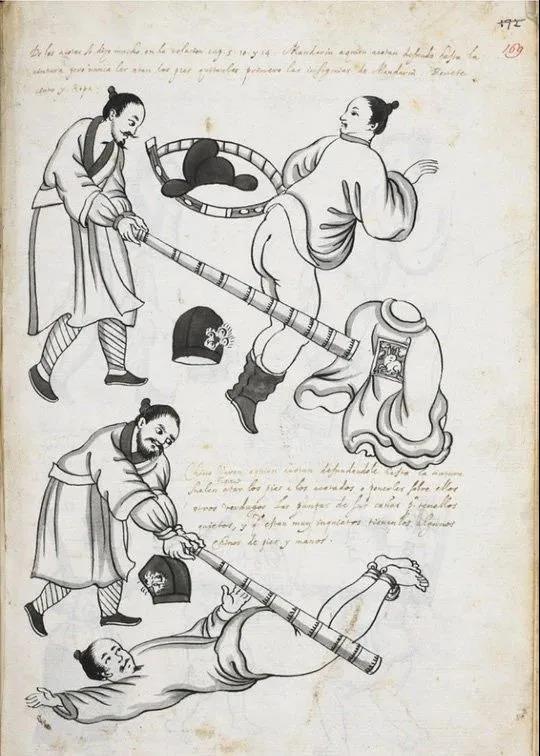 192
169
De los azotes se dixo mucho en la relacion cap. 5. 10. y 14. Mandarin a quien azotan desnudo hasta la
cintura pero nunca les atan los pies quitanles primero las insignias de Mandarin Bonete
cinto y Ropa
Chino a quien azotan desnudandole hasta la
Suelen atar los pies a los azotados o ponerles sobre ellos
otros verdugos las puntas de sus cañas para tenellos
quietos, y si estan muy inquietos tienenlos algunos
chinos de pies y manos.